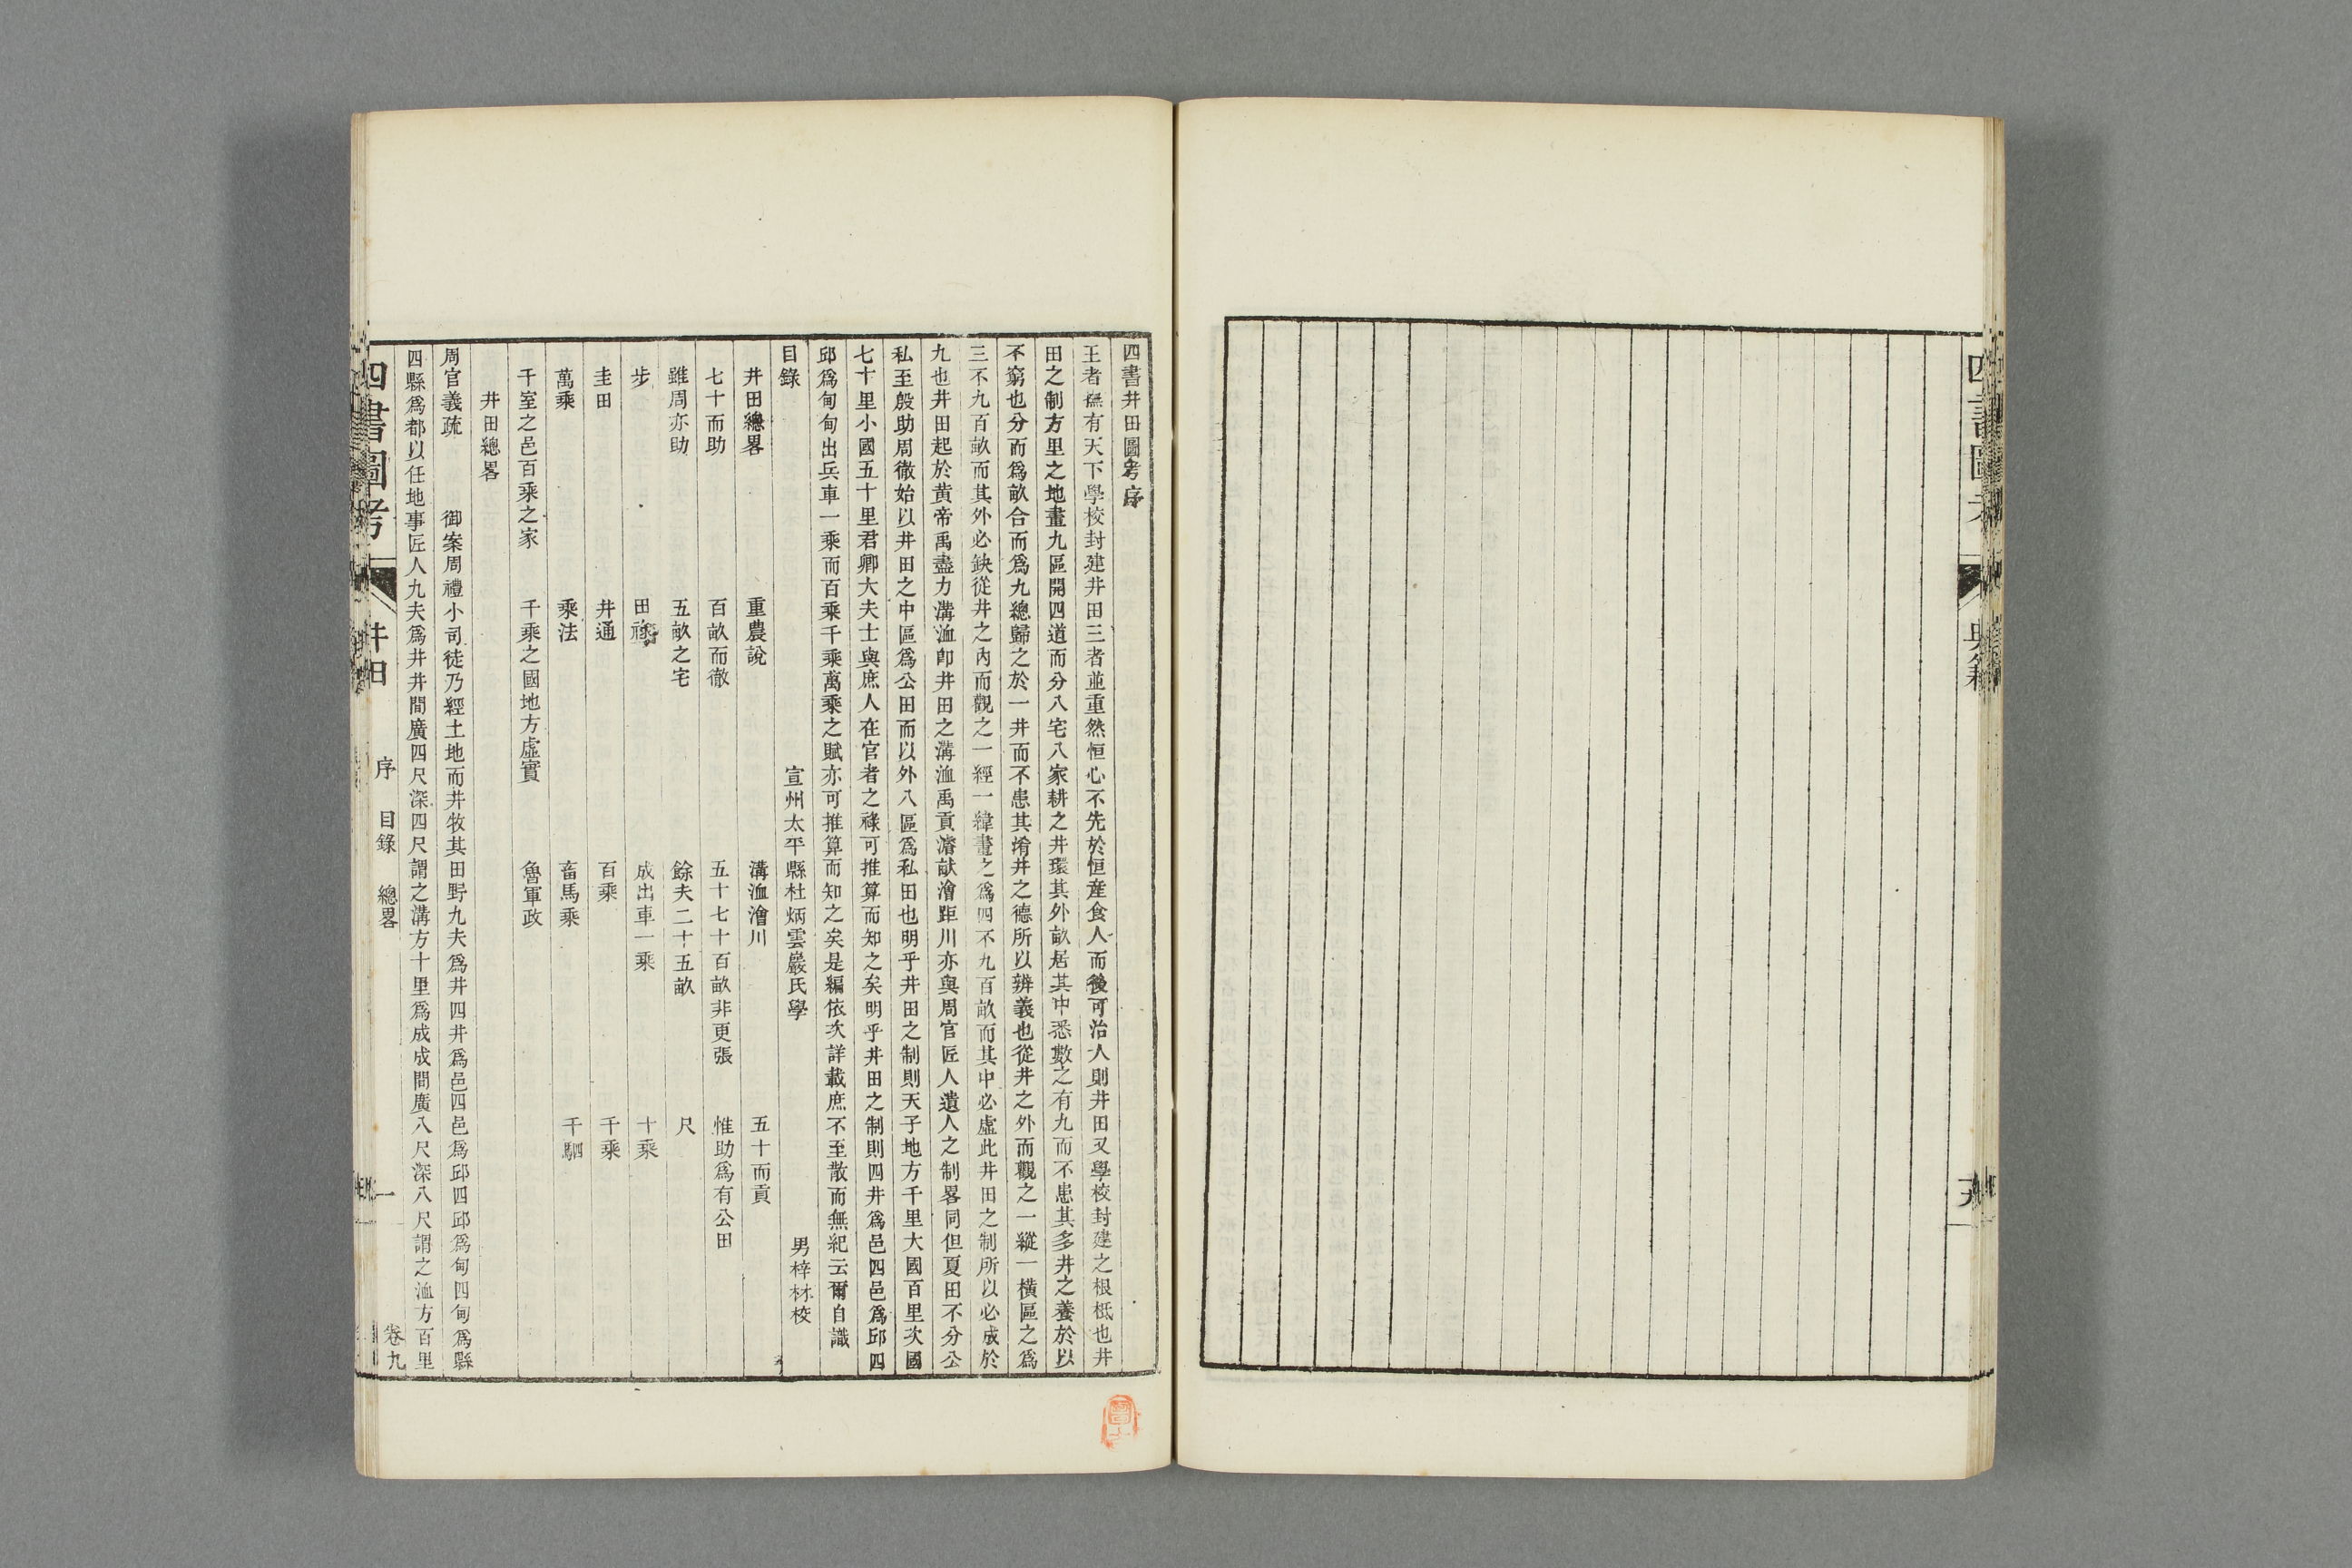 四書井田圖考序
王者撫有天下學校封建井田三者並重然恒心不先於恒産食人而後可治人則井田又學校封建之根柢也井
田之制方里之地畫九區開四道而分八宅八家耕之井環其外畝居其中悉數之有九而不患其多井之養於以
不窮也分而爲畝合而爲九總歸之於一井而不患其淆井之德所以辨義也從井之外而觀之一縱一橫區之爲
三不九百畝而其外必缺從井之內而觀之一經一緯畫之爲四不九百畝而其中必虛此井田之制所以必成於
九也井田起於黄帝禹盡力溝洫卽井田之溝洫禹貢濬畎澮距川亦與周官匠人遺人之制畧同但夏田不分公
私至殷助周徹始以井田之中區爲公田而以外八區爲私田也明乎井田之制則天子地方千里大國百里次國
七十里小國五十里君卿大夫士與庶人在官者之祿可推算而知之矣明乎井田之制則四井爲邑四邑爲邱四
邱爲甸甸出兵車一乘而百乘千乘萬乘之賦亦可推算而知之矣是編依次詳載庶不至散而無紀云爾自識
目錄　宣州太平縣杜炳雲巖氏學　男梓材校
井田總畧　重農說　溝洫澮川　五十而貢
七十而助　百畝而徹　五十七十百畝非更張　惟助爲有公田
雖周亦助　五畝之宅　餘夫二十五畝　尺
步　田祿　成出車一乘　十乘
圭田　井通　百乘　千乘
萬乘　乘法　畜馬乘　千駟
千室之邑百乘之家　千乘之國地方虛實　魯軍政
井田總畧
周官義疏　御案周禮小司徒乃經土地而井牧其田野九夫爲井四井爲邑四邑爲邱四邱爲甸四甸爲縣
四縣爲都以任地事匠人九夫爲井井間廣四尺深四尺謂之溝方十里爲成成間廣八尺深八尺謂之洫方百里
四書圖考　井田　序　目錄　總畧　一　卷九